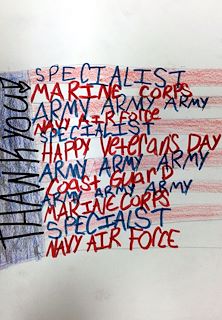 THANK YOU
SPECIALIST
MARINE CORPS
ARMY ARMY ARMY
NAVY AIR FORCE
SPECIALIST
HAPPY Veteran's DAY
ARMY ARMY ARMY
Coast Guard
ARMY ARMY ARMY
MARINE CORPS
SPECIALST
NAVY AIR FORCE